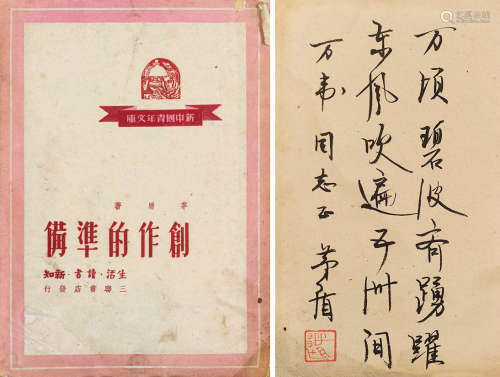 新中國青年文庫
茅盾著
創作的準備
生活·讀書·新知
三聯書店發行
万頃碧波齐踴躍
东风吹遍五洲间
同志正 茅盾